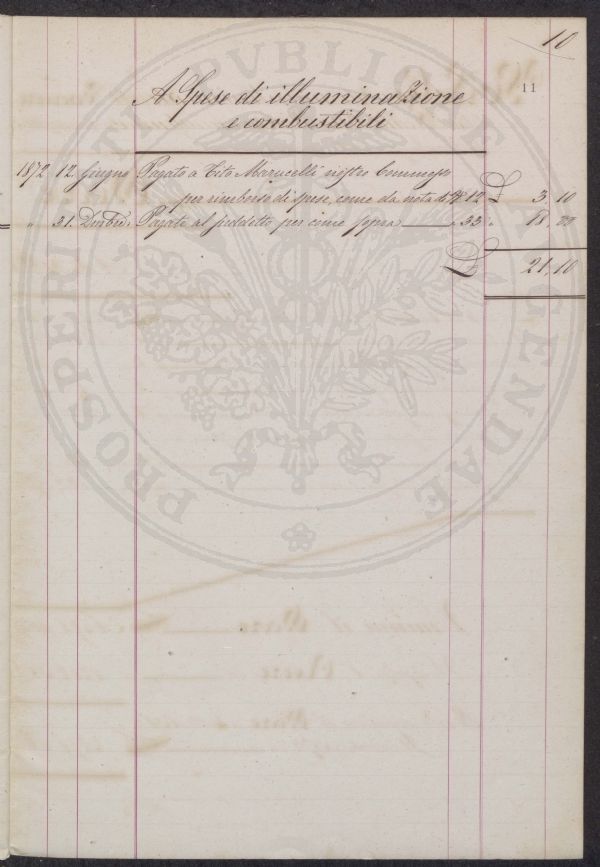 10
11
A Spese di illuminazione
e combustibili
1872 12. Giugno Pagato a Tito Marucelli nostro Commesso
per rimborso di spese, come da nota 12 L 3. 10
" 31. Dicembre Pagato al suddetto per come sopra 33 " 18. 00
L 21. 10
PROSPERITATI PUBLICAE AUGENDAE